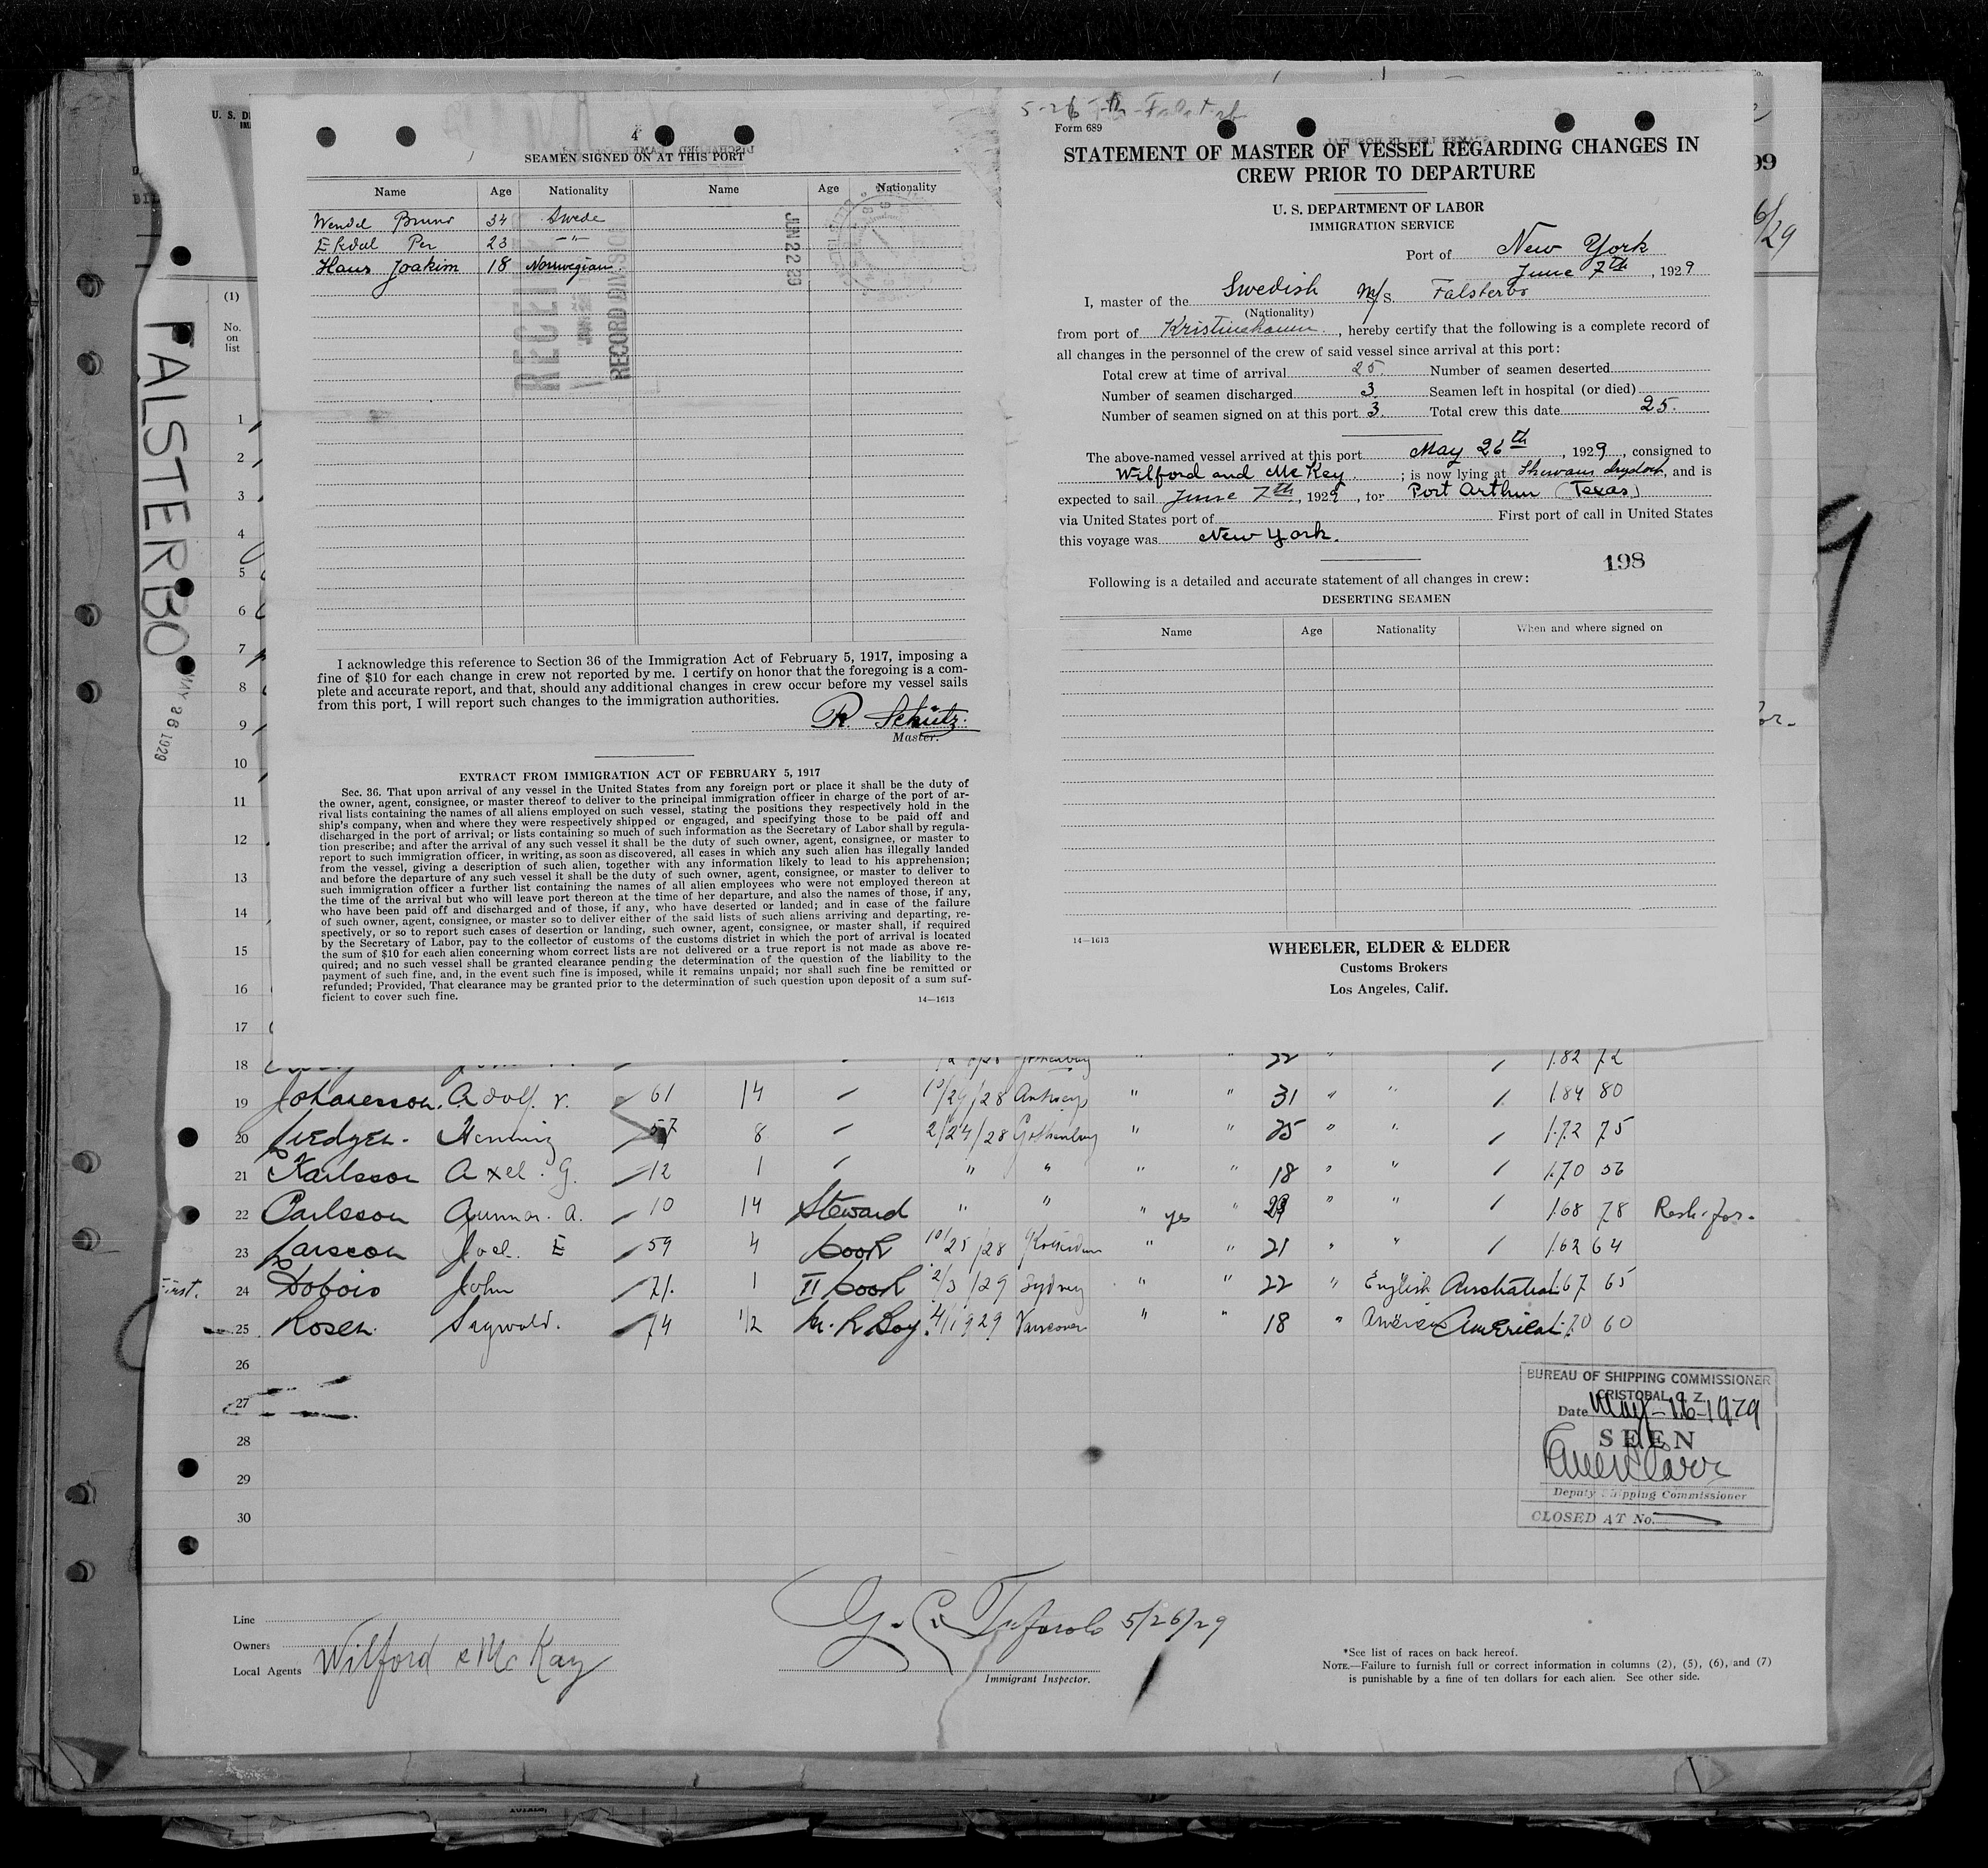 FALSTERBO
MAY 26 1929
U. S. D
4
SEAMEN SIGNED ON AT THIS PORT
Name Age Nationality Name Age Nationality
Wendel Bruno 34 Swede
Ekdal Per 23 -"-
Haus Joakim 18 Norwegian
JUN 22 29
RECEI
RECORD DIVISIO
I acknowledge this reference to Section 36 of the Immigration Act of February 5, 1917, imposing a
fine of $10 for each change in crew not reported by me. I certify on honor that the foregoing is a com-
plete and accurate report, and that, should any additional changes in crew occur before my vessel sails
from this port, I will report such changes to the immigration authorities.
R. Schütz.
Master.
EXTRACT FROM IMMIGRATION ACT OF FEBRUARY 5, 1917
Sec. 36. That upon arrival of any vessel in the United States from any foreign port or place it shall be the duty of
the owner, agent, consignee, or master thereof to deliver to the principal immigration officer in charge of the port of ar-
rival lists containing the names of all aliens employed on such vessel, stating the positions they respectively hold in the
ship's company, when and where they were respectively shipped or engaged, and specifying those to be paid off and
discharged in the port of arrival; or lists containing so much of such information as the Secretary of Labor shall by regula-
tion prescribe; and after the arrival of any such vessel it shall be the duty of such owner, agent, consignee, or master to
report to such immigration officer, in writing, as soon as discovered, all cases in which any such alien has illegally landed
from the vessel, giving a description of such alien, together with any information likely to lead to his apprehension;
and before the departure of any such vessel it shall be the duty of such owner, agent, consignee, or master to deliver to
such immigration officer a further list containing the names of all alien employees who were not employed thereon at
the time of the arrival but who will leave port thereon at the time of her departure, and also the names of those, if any,
who have been paid off and discharged and of those, if any, who have deserted or landed; and in case of the failure
of such owner, agent, consignee, or master so to deliver either of the said lists of such aliens arriving and departing, re-
spectively, or so to report such cases of desertion or landing, such owner, agent, consignee, or master shall, if required
by the Secretary of Labor, pay to the collector of customs of the customs district in which the port of arrival is located
the sum of $10 for each alien concerning whom correct lists are not delivered or a true report is not made as above re-
quired; and no such vessel shall be granted clearance pending the determination of the question of the liability to the
payment of such fine, and, in the event such fine is imposed, while it remains unpaid; nor shall such fine be remitted or
refunded; Provided, That clearance may be granted prior to the determination of such question upon deposit of a sum suf-
ficient to cover such fine.
14—1613
Form 689
STATEMENT OF MASTER OF VESSEL REGARDING CHANGES IN
CREW PRIOR TO DEPARTURE
U. S. DEPARTMENT OF LABOR
IMMIGRATION SERVICE
Port of New York
June 7th, 1929
I, master of the Swedish M/S. Falsterbo
(Nationality)
from port of Kristinehamn, hereby certify that the following is a complete record of
all changes in the personnel of the crew of said vessel since arrival at this port:
Total crew at time of arrival 25. Number of seamen deserted
Number of seamen discharged 3 Seamen left in hospital (or died)
Number of seamen signed on at this port 3. Total crew this date 25.
The above-named vessel arrived at this port May 26th, 1929, consigned to
Wilford and McKey; is now lying at drydock, and is
expected to sail June 7th, 1929, for Port Arthur (Texas)
via United States port of First port of call in United States
this voyage was New York.
198
Following is a detailed and accurate statement of all changes in crew:
DESERTING SEAMEN
Name Age Nationality When and where signed on
14—1613
WHEELER, ELDER & ELDER
Customs Brokers
Los Angeles, Calif.
(1)
No.
on
list
1
2
3
4
5
6
7
8
9
10
11
12
13
14
15
16
17
18 Gothenburg " " 22 " 1.82 72
19 Johanesson. Adolf. V. 61 14 10/29/28 Antwerp " " 31 " " 1.84 80
20 Henning 57 8 2/24/28 Gothenburg " " 25 " " 1.72 75
21 Karlsson Axel. G. 12 1 " " " " 18 " " 1.70 56
22 Carlsson Gunnar. A. 10 14 Steward " " " yes " 29 " " 1.68 78
23 Larsson Joel. E 59 4 Cook 10/25/28 Rotterdam " " 21 " " 1.62 64
First. 24 Dobois John 71. 1 II Cook 2/3/29 Sydney " " 22 " English Australian 1.67 65
25 Rosen. Sagwald. 74 1/2 M. R. Boy. 4/1 1929 Vancover " " 18 " American 1.70 60
26
27
28
29
30
BUREAU OF SHIPPING COMMISSIONER
CRISTOBAL, C. Z.
Date May-16-1929
SEEN
Deputy Shipping Commissioner
CLOSED AT No.
Line
Owners
Local Agents Wilford & McKay
5/26/29
Immigrant Inspector.
*See list of races on back hereof.
NOTE.—Failure to furnish full or correct information in columns (2), (5), (6), and (7)
is punishable by a fine of ten dollars for each alien. See other side.